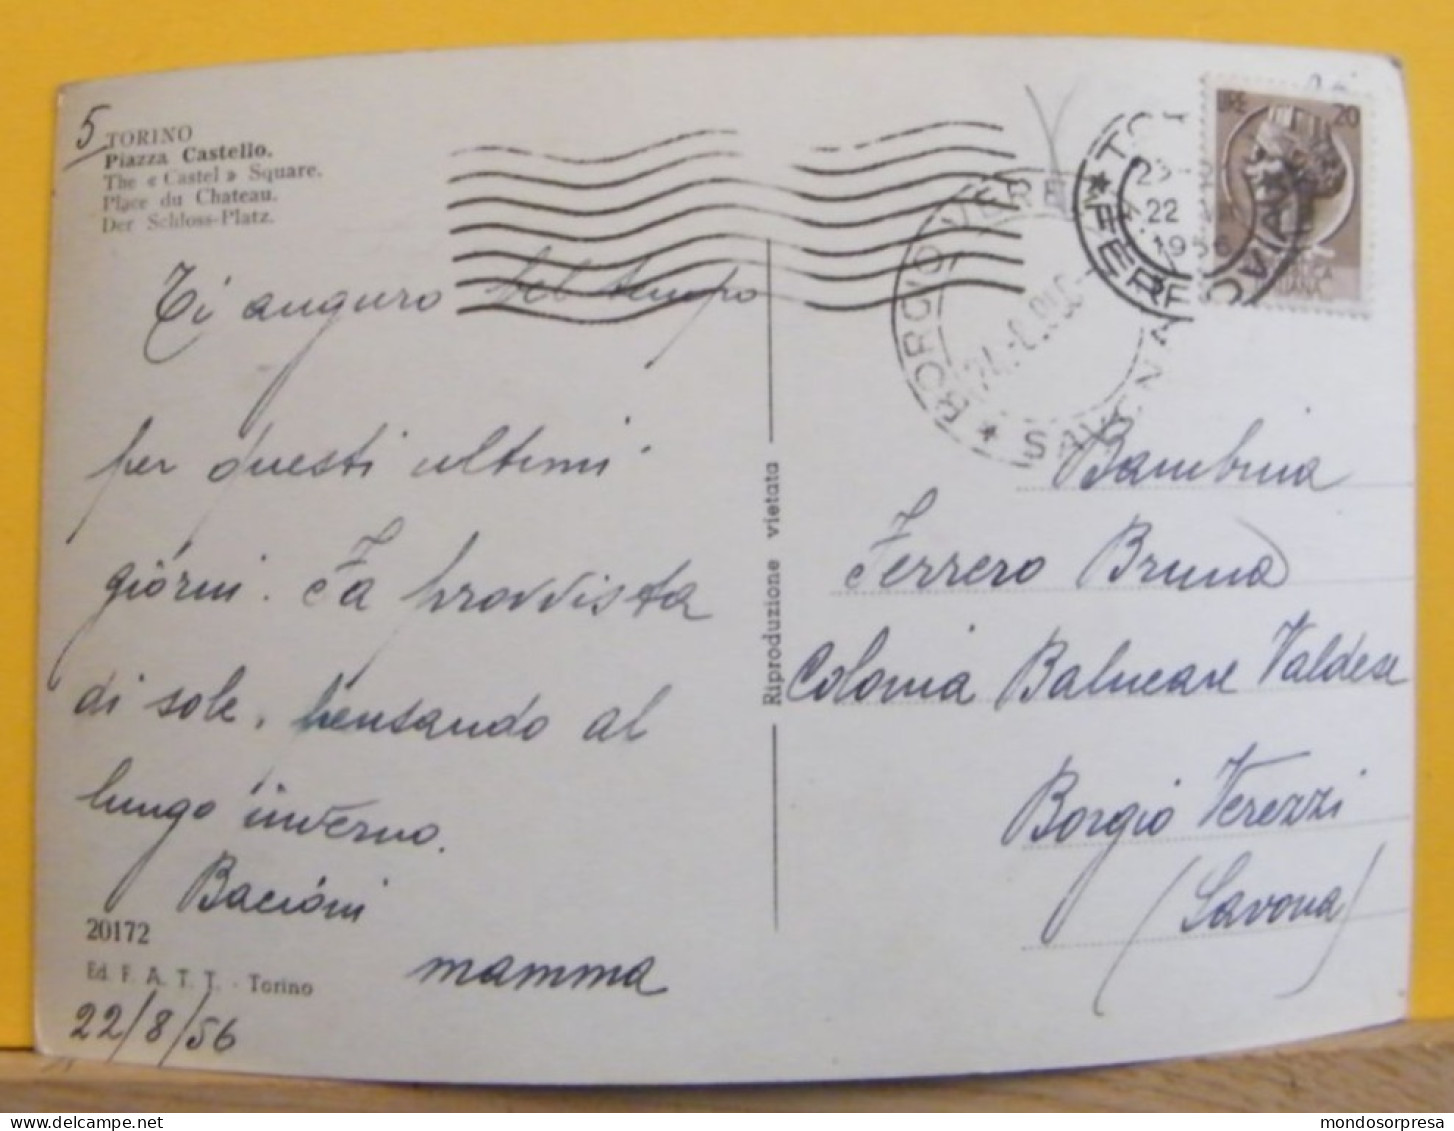 5
TORINO
Piazza Castello.
The « Castel » Square.
Place du Chateau.
Der Schloss-Platz.
Ti auguro bel tempo
per questi ultimi
giorni. Fa provvista
di sole, pensando al
lungo inverno.
Bacioni
mamma
20172
Ed. F. A. T. T. - Torino
22/8/56
Riproduzione vietata
BORGIO VERE
SAVONA
FERROVIA
22
1956
LIRE 20
Bambina
Ferrero Bruna
Colonia Balneare Valdese
Borgio Verezzi
(Savona)
mondosorpresa